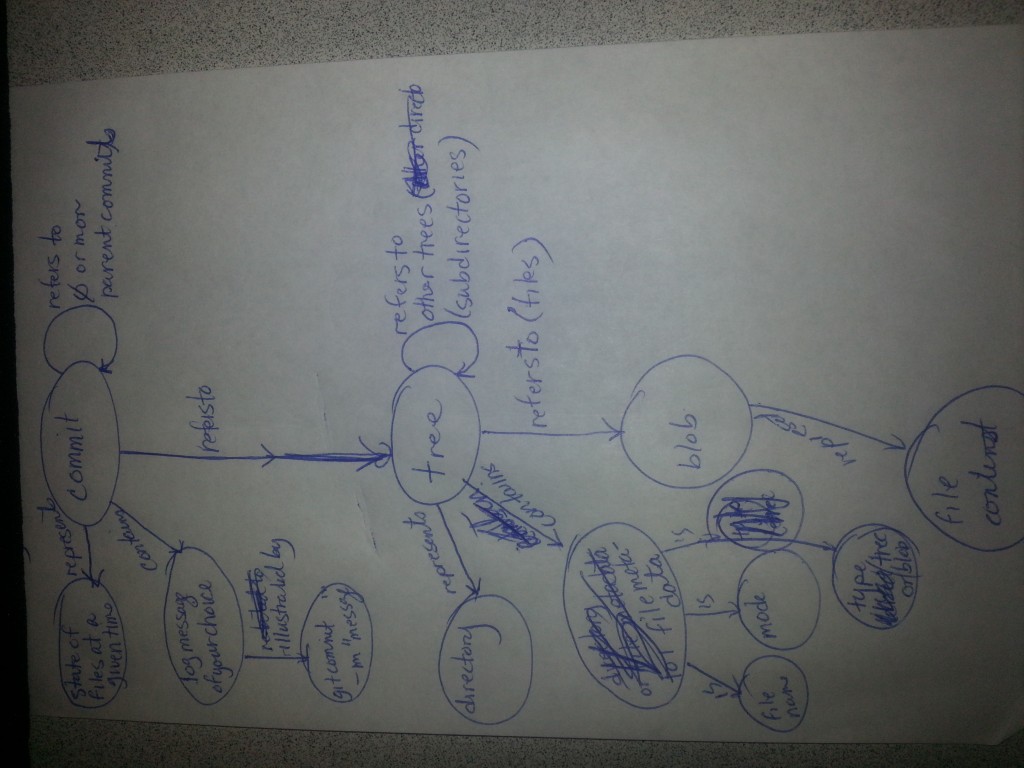 refers to
0 or more
parent commits
commit
represents
state of
files at a
given time
contains
log message
of your choice
illustrated by
git commit
-m "messg"
refers to
refers to
other trees
(subdirectories)
tree
represents
directory
contains
refers to (files)
file meta-
data
is
file
name
is
mode
is
type
tree
or blob
blob
rep
file
content